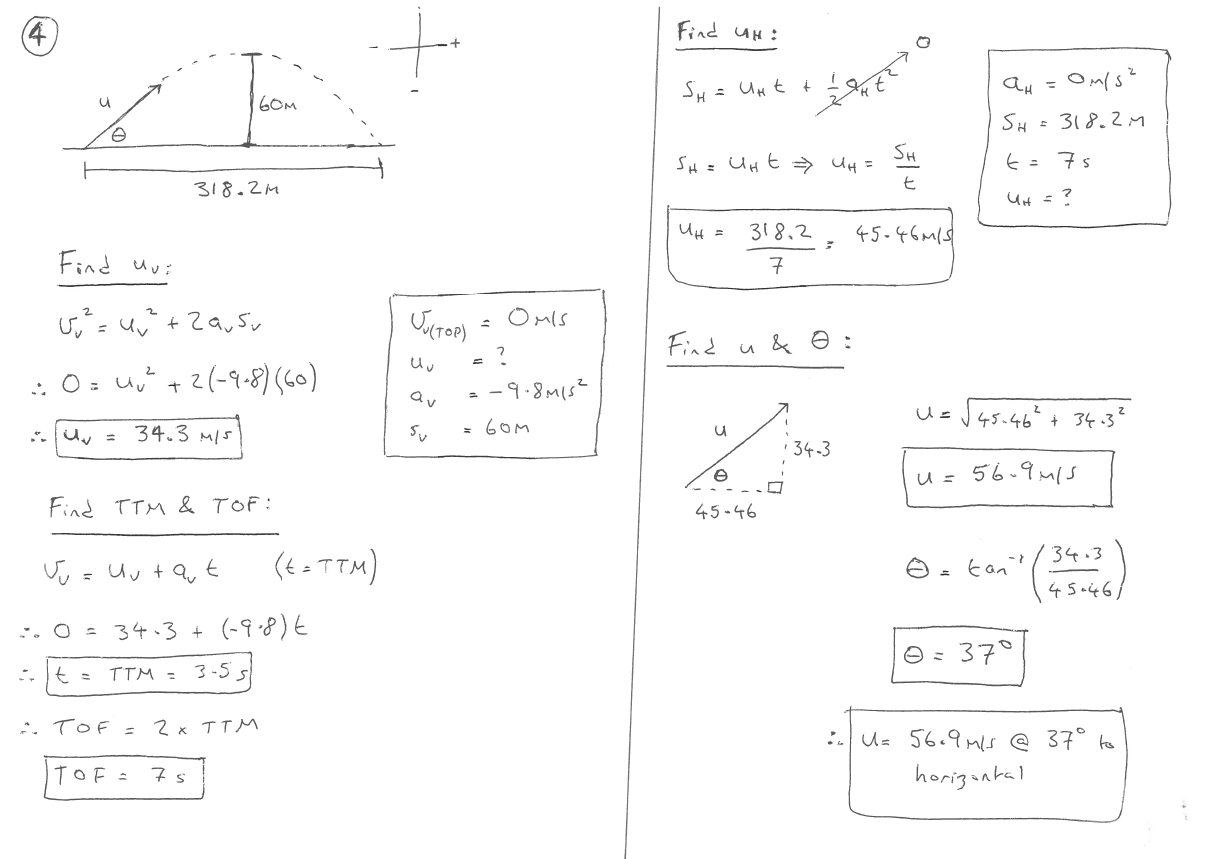 4
- +
-
u
60m
θ
318.2m
Find uᵥ:
vᵥ² = uᵥ² + 2aᵥsᵥ
∴ 0 = uᵥ² + 2(-9.8)(60)
∴ uᵥ = 34.3 m/s
vᵥ(TOP) = 0m/s
uᵥ = ?
aᵥ = -9.8m/s²
sᵥ = 60m
Find TTM & TOF:
vᵥ = uᵥ + aᵥt (t = TTM)
∴ 0 = 34.3 + (-9.8)t
∴ t = TTM = 3.5s
∴ TOF = 2 × TTM
TOF = 7s
Find u_H:
s_H = u_H t + ½ a_H t² 0
s_H = u_H t ⇒ u_H = s_H / t
u_H = 318.2 / 7 = 45.46m/s
a_H = 0m/s²
s_H = 318.2m
t = 7s
u_H = ?
Find u & θ:
u
34.3
θ
45.46
u = √(45.46² + 34.3²)
u = 56.9m/s
θ = tan⁻¹(34.3 / 45.46)
θ = 37°
∴ u = 56.9m/s @ 37° to
horizontal